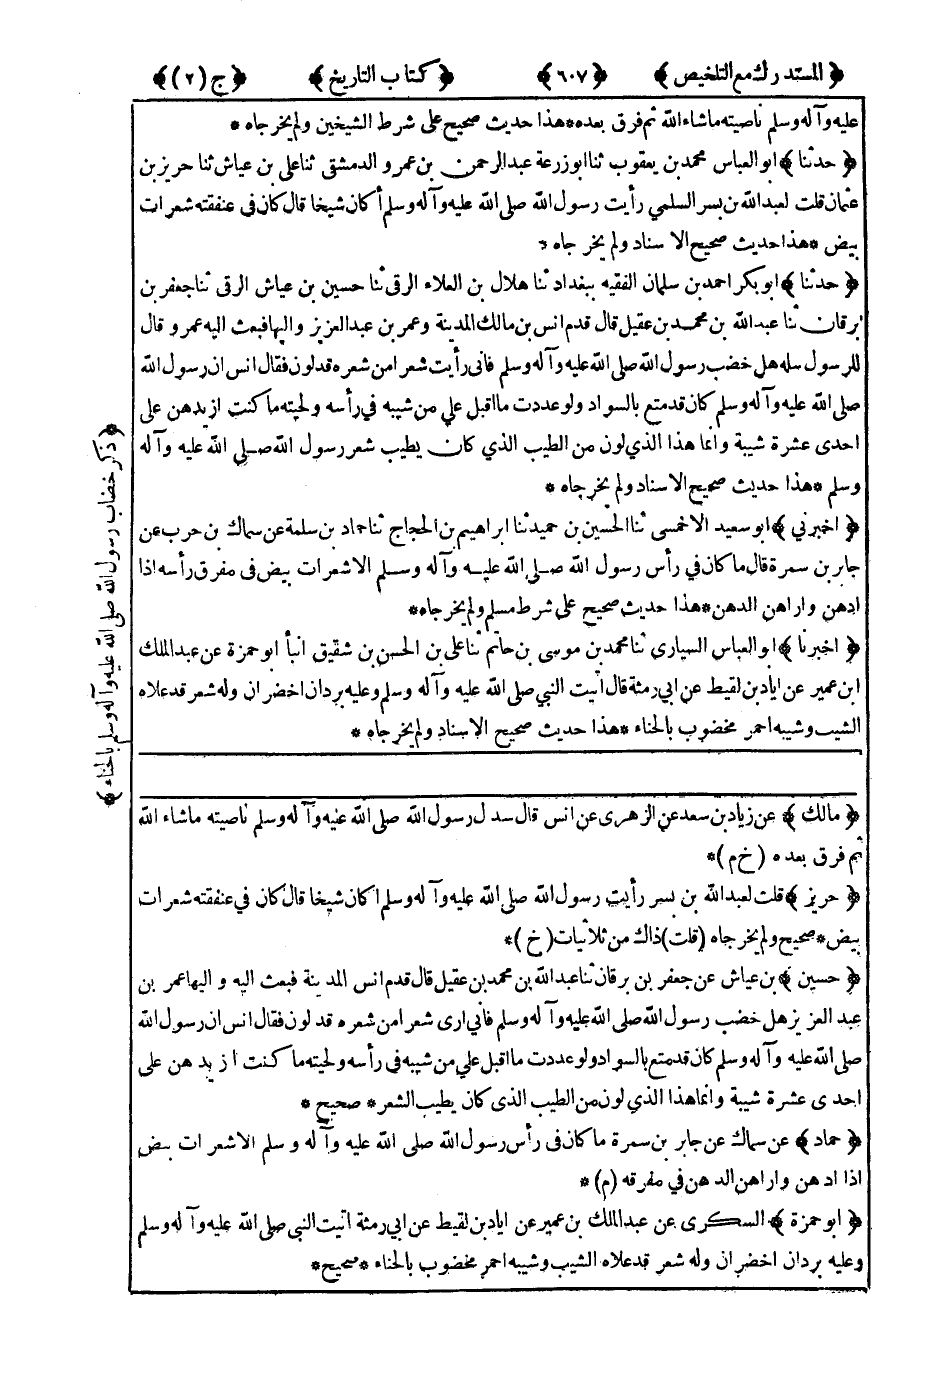 ﴿ المستدرك مع التلخيص ﴾ ﴿ ٦٠٧ ﴾ ﴿ كتاب التاريخ ﴾ ﴿ ج (٢) ﴾
عليه وآله وسلم ناصيته ماشاء الله ثم فرق بعده*هذا حديث صحيح على شرط الشيخين ولم يخرجاه *
﴿ حدثنا ﴾ ابو العباس محمد بن يعقوب ثنا ابو زرعة عبد الرحمن بن عمرو الدمشقى ثنا على بن عياش ثنا حريز بن
عثمان قلت لعبد الله بن بسر السلمي رأيت رسول الله صلى الله عليه وآله وسلم أكان شيخا قال كان فى عنفقته شعرات
بيض *هذا حديث صحيح الاسناد ولم يخرجاه *
﴿ حدثنا ﴾ ابو بكر احمد بن سلمان الفقيه ببغداد ثنا هلال بن العلاء الرقى ثنا حسين بن عياش الرقى ثنا جعفر بن
برقان ثنا عبد الله بن محمد بن عقيل قال قدم انس بن مالك المدينة وعمر بن عبد العزيز واليها فبعث اليه عمر و قال
للرسول سله هل خضب رسول الله صلى الله عليه وآله وسلم فانى رأيت شعرا من شعره قد لون فقال انس ان رسول الله
صلى الله عليه وآله وسلم كان قد متع بالسواد ولو عددت ما اقبل علي من شيبه في رأسه ولحيته ما كنت ازيدهن على
احدى عشرة شيبة وانما هذا الذي لون من الطيب الذي كان يطيب شعر رسول الله صلى الله عليه وآله
وسلم *هذا حديث صحيح الاسناد ولم يخرجاه *
﴿ اخبرني ﴾ ابو سعيد الاخمسى ثنا الحسين بن حميد ثنا ابراهيم بن الحجاج ثنا حماد بن سلمة عن سماك بن حرب عن
جابر بن سمرة قال ما كان في رأس رسول الله صلى الله عليه وآله وسلم الا شعرات بيض فى مفرق رأسه اذا
ادهن واراهن الدهن*هذا حديث صحيح على شرط مسلم ولم يخرجاه*
﴿ اخبرنا ﴾ ابو العباس السيارى ثنا محمد بن موسى بن حاتم ثنا على بن الحسن بن شقيق انبأ ابو حمزة عن عبد الملك
ابن عمير عن اياد بن لقيط عن ابي رمثة قال أتيت النبي صلى الله عليه وآله وسلم وعليه بردان اخضران وله شعر قد علاه
الشيب وشيبه احمر مخضوب بالحناء *هذا حديث صحيح الاسناد ولم يخرجاه *
﴿ ذكر خضاب رسول الله صلى الله عليه وآله وسلم بالحناء ﴾
﴿ مالك ﴾ عن زياد بن سعد عن الزهرى عن انس قال سدل رسول الله صلى الله عليه وآله وسلم ناصيته ماشاء الله
ثم فرق بعده (خ م)*
﴿ حريز ﴾ قلت لعبد الله بن بسر رأيت رسول الله صلى الله عليه وآله وسلم اكان شيخا قال كان في عنفقته شعرات
بيض*صحيح ولم يخرجاه (قلت) ذاك من ثلاثيات (خ)*
﴿ حسين ﴾ بن عياش عن جعفر بن برقان ثنا عبد الله بن محمد بن عقيل قال قدم انس المدينة فبعث اليه و اليها عمر بن
عبد العزيز هل خضب رسول الله صلى الله عليه وآله وسلم فاني ارى شعرا من شعره قد لون فقال انس ان رسول الله
صلى الله عليه وآله وسلم كان قد متع بالسواد ولو عددت ما اقبل علي من شيبه فى رأسه ولحيته ما كنت ازيدهن على
احدى عشرة شيبة وانما هذا الذي لون من الطيب الذى كان يطيب الشعر* صحيح *
﴿ حماد ﴾ عن سماك عن جابر بن سمرة ما كان فى رأس رسول الله صلى الله عليه وآله وسلم الا شعرات بيض
اذا ادهن واراهن الدهن في مفرقه (م) *
﴿ ابو حمزة ﴾ السكرى عن عبد الملك بن عمير عن اياد بن لقيط عن ابي رمثة اتيت النبي صلى الله عليه وآله وسلم
وعليه بردان اخضران وله شعر قد علاه الشيب وشيبه احمر مخضوب بالحناء *صحيح*